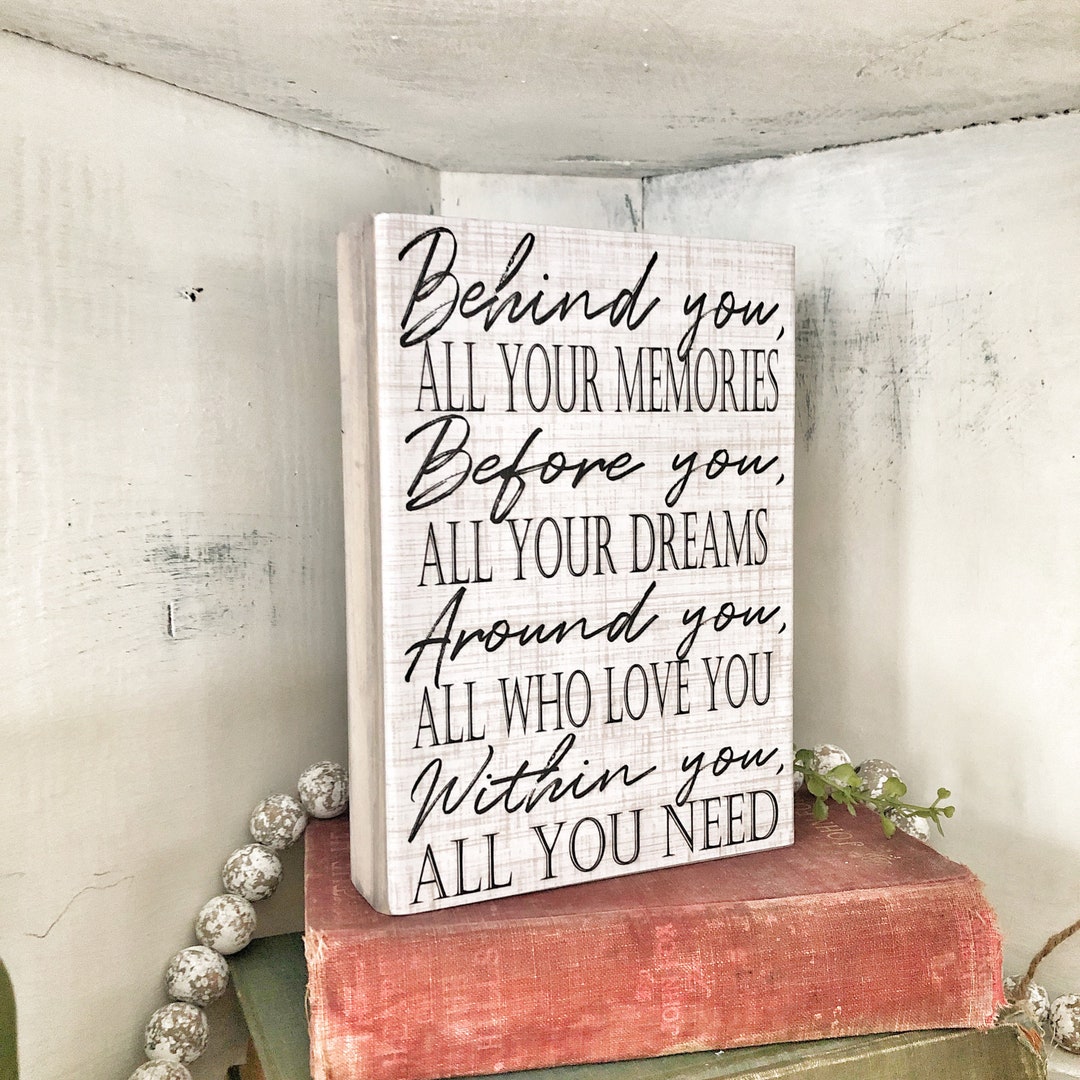 Behind you,
ALL YOUR MEMORIES
Before you,
ALL YOUR DREAMS
Around you,
ALL WHO LOVE YOU
Within you,
ALL YOU NEED
JOHN FOX